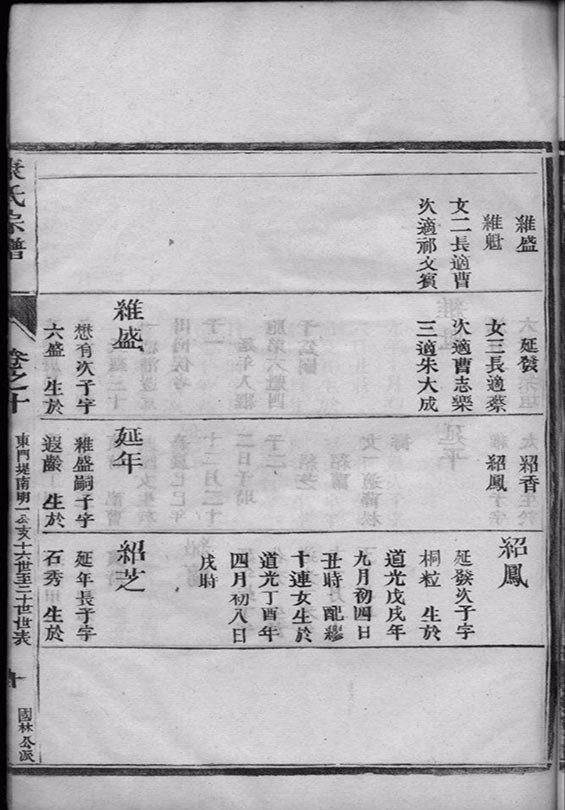 維盛
維魁
文二長適曹
次適祁文賓
延發
女三長適蔡
次適曹志樂
三適朱大成
維盛
懋有次子字
六盛 生於
紹香
紹鳳
延年
維盛嗣子字
遐齡 生於
紹鳳
延發次子字
桐粒 生於
道光戊戌年
九月初四日
丑時 配繆
十連女生於
道光丁酉年
四月初八日
戌時
紹芝
延年長子字
石秀 生於
氏宗譜
卷之十
東門堤南明一公亥十六世至二十世世表
十
國林公派